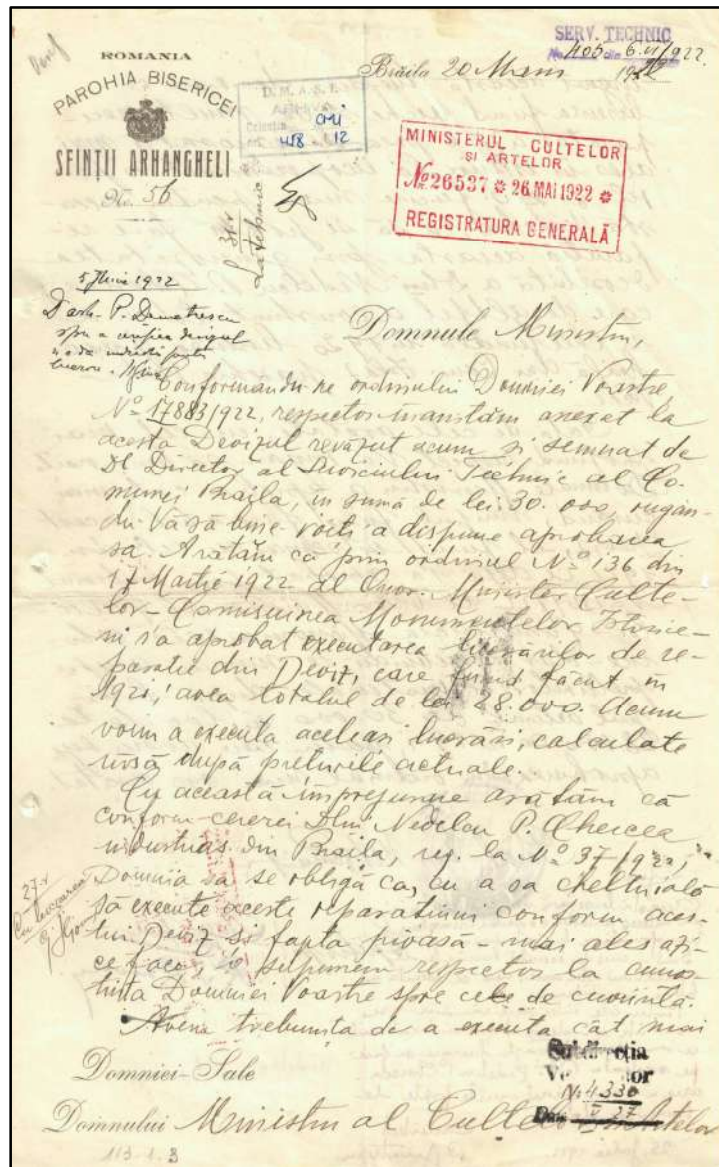 SERV. TECHNIC
No. 405 din 6.VI/922.
ROMANIA
PAROHIA BISERICEI
SFINȚII ARHANGHELI
No. 56
Brăila 20 Maiu 1922
MINISTERUL CULTELOR
SI ARTELOR
No. 26537 * 26 MAI 1922 *
REGISTRATURA GENERALĂ
D. M. A. S. I.
458 112
5 Iunie 1922
D arh. P. Demetrescu
spre a verifica devizul
Domnule Ministru,
Conformându-ne ordinului Domniei Voastre
No 17883/1922, respectos înaintăm anexat la
acesta Devizul revăzut acum și semnat de
Dl Director al Serviciului Technic al Co-
munei Braila, în sumă de lei 30.000, rugân-
du-Vă să bine-voiți a dispune aprobarea
sa. Arătăm că prin ordinul No 136 din
17 Martie 1922 al Onor. Minister Culte-
lor - Comisiunea Monumentelor Istorice -
ni s'a aprobat executarea lucrărilor de re-
parație din Deviz, care fiind făcut în
1921, avea totalul de lei 28.000. Acum
voim a executa aceleași lucrări, calculate
însă după prețurile actuale.
Cu această împrejurare arătăm că
conform cererei Dlui Nedelcu P. Chercea
industriaș din Braila, reg. la No 37/1922,
Domnia sa se obligă ca, cu a sa cheltuială
să execute aceste reparațiuni conform aces-
tui Deviz și fapta pioasă - mai ales azi -
ce face, o supunem respectos la cunoș-
tința Domniei Voastre spre cele de cuviință.
Avem trebuința de a executa cât mai
27.V
Subdirecția
No. 4330
Domniei-Sale
Domnului Ministru al Cultelor
113-1.3